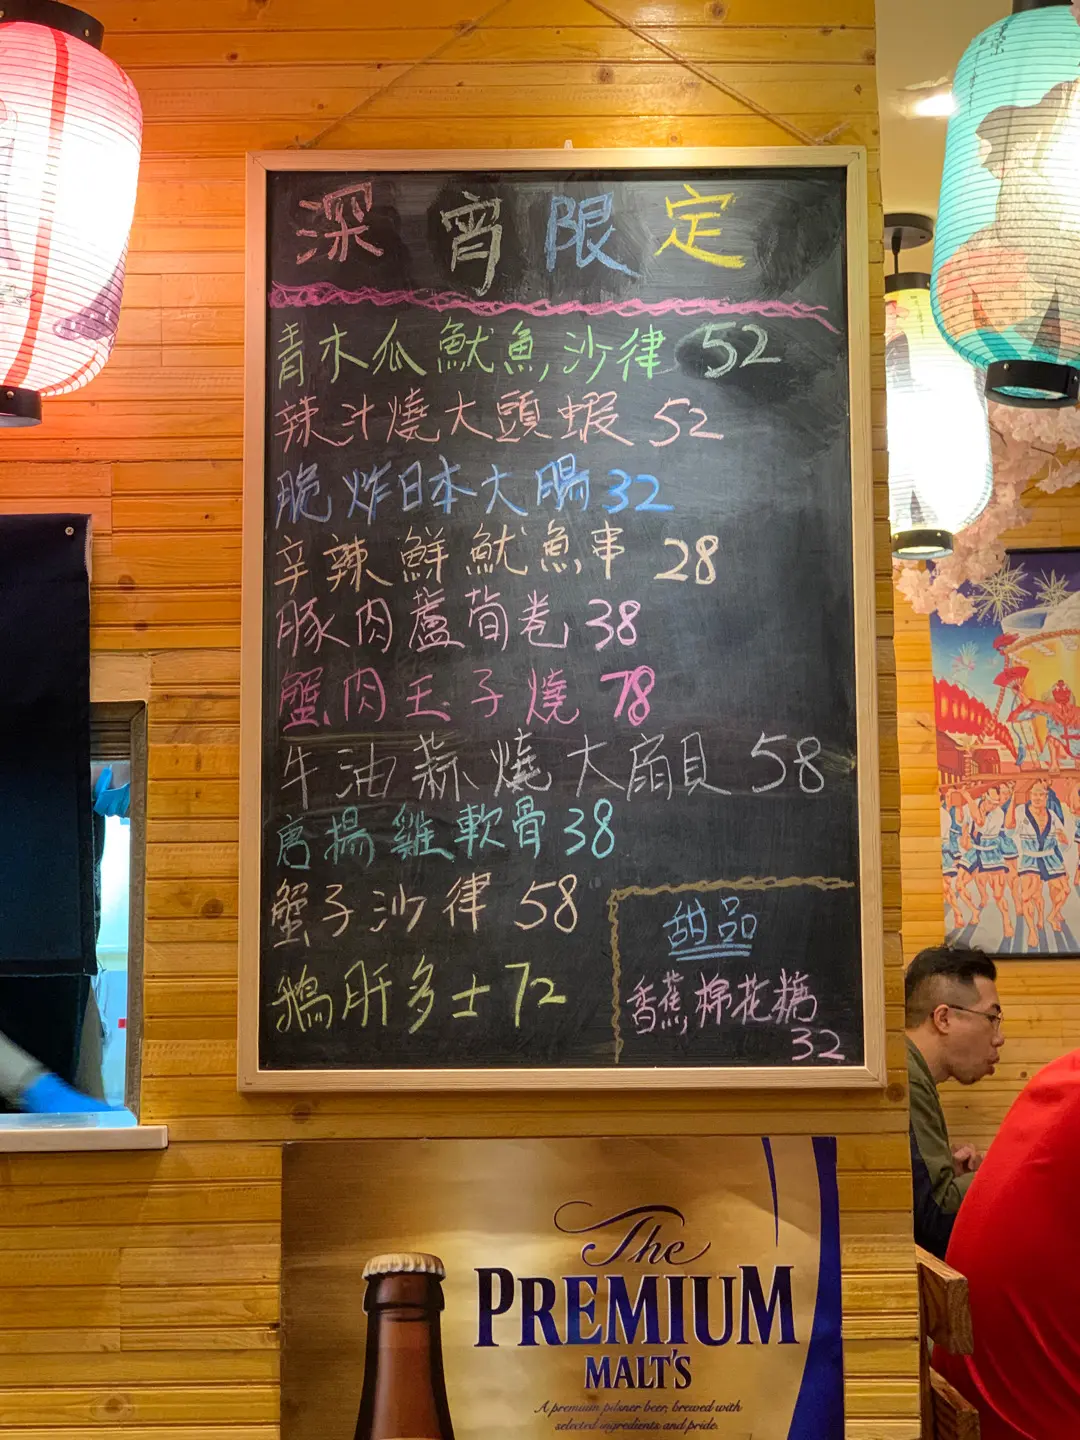 深宵限定
青木瓜魷魚沙律 52
辣汁燒大頭蝦 52
脆炸日本大腸 32
辛辣鮮魷魚串 28
豚肉蘆筍卷 38
蟹肉玉子燒 78
牛油蒜燒大扇貝 58
唐揚雞軟骨 38
蟹子沙律 58
鵝肝多士 72
甜品
香蕉棉花糖
32
The
PREMIUM
MALT'S
A premium pilsner beer, brewed with
selected ingredients and pride.